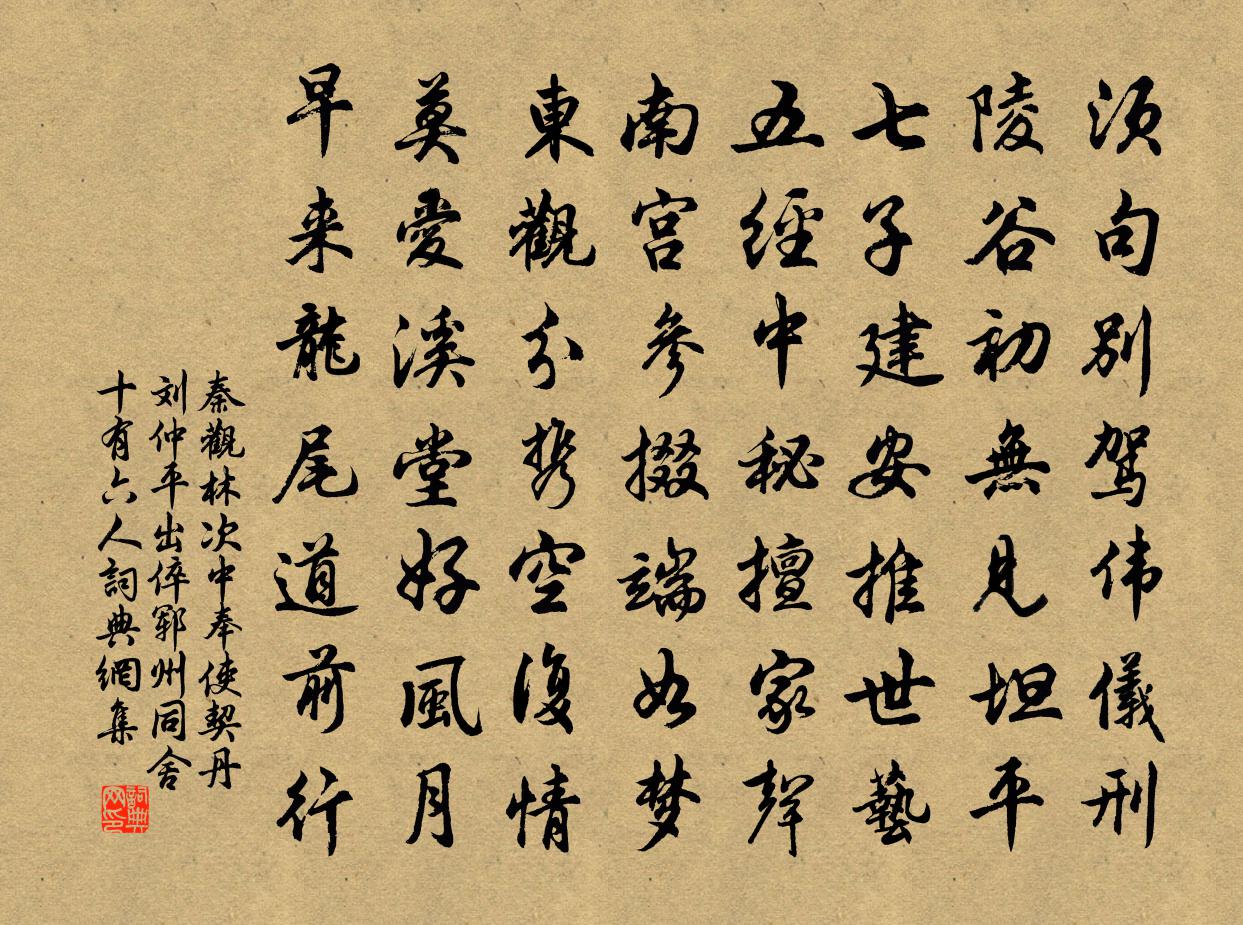 须句别驾伟儀刑
陵谷初無見坦平
七子建安推世藝
五經中秘擅家聲
南宫參掇端如梦
東觀分携空復情
莫愛溪堂好風月
早来龍尾道前行
秦觀林次中奉使契丹
刘仲平出倅鄆州同舍
十有六人詞典網集
詞典网印